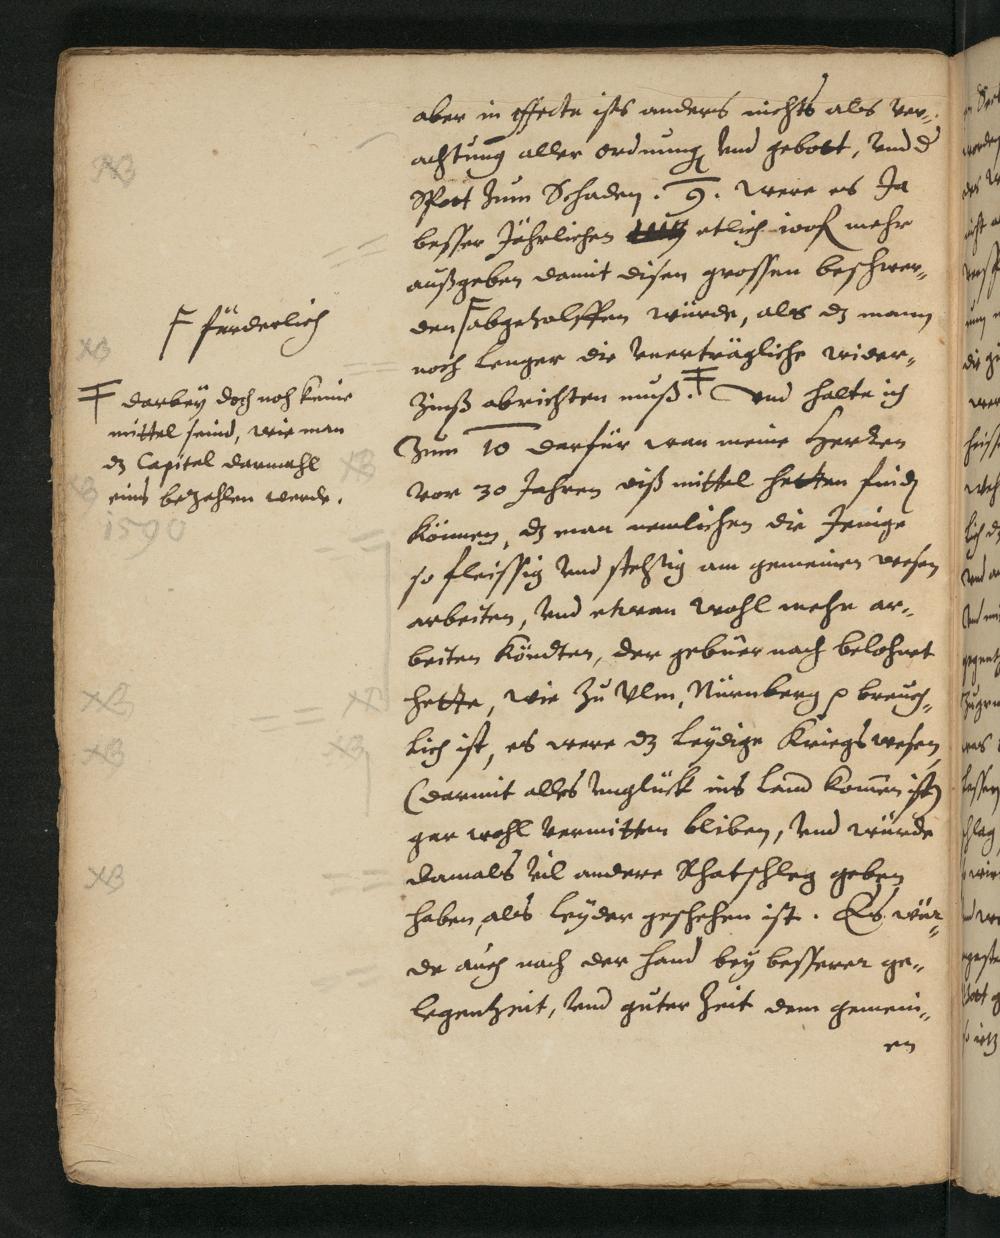 aber in effecte ists anders nichts als ver-
achtung aller ordnung und gebott, und d
Spott zum Schaden. 9. were es Ja
besser Jährlichen etlich mehr
außgeben damit disen grossen beschwer-
den abgeholffen würde, als dz mann
noch lenger die unerträgliche wider-
Zinß abrichten muß. Und halte ich
Zum 10 darfür wan meine Herren
vor 30 Jahren diß mittel hetten find
können, dz man nemlichen die Jenige
so fleissig und stehtig am gemeinen wesen
arbeiten, und etwan wohl mehr ar-
beiten köndten, der gebüer nach belohnet
hette, wie zu Ulm, Nürnberg p breuch-
lich ist, es were dz leydige Kriegswesen
(darmit alles unglück ins land kom̄en ist)
gar wohl vermitten bliben, und würde
damals vil andere Rhatschleg geben
haben, als leyder geschehen ist. Es wür-
de auch nach der hand bey besserer ge-
legenheit, und guter Zeit dem gemein-
en
F fürderlich
darbey doch noh keine
mittel seind, wie man
dz Capital darmahl
eins bezahlen werde.
NB
NB
NB
NB
1590
NB
NB
NB
NB
NB